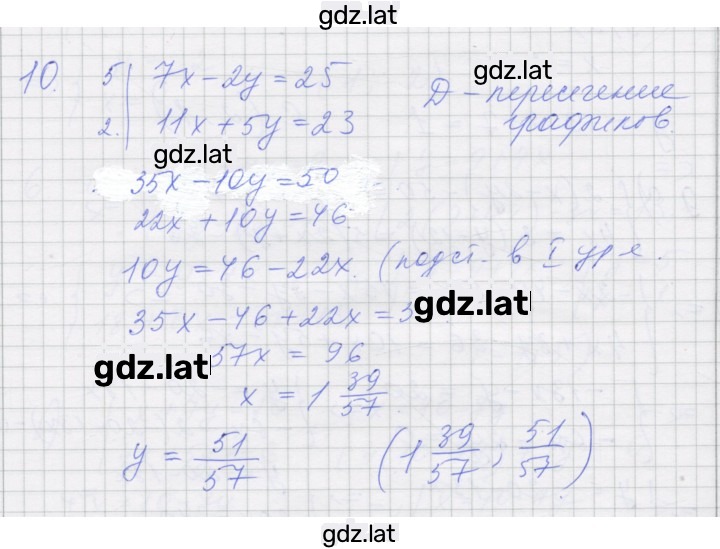 gdz.lat
10. 5 | 7x - 2y = 25
2. | 11x + 5y = 23
gdz.lat
D - пересечение
графиков.
gdz.lat
35x - 10y = 50
22x + 10y = 46.
10y = 46 - 22x. (подст. в I ур-е.
35x - 46 + 22x =
gdz.lat
gdz.lat
57x = 96
x = 1 39/57
y = 51/57 (1 39/57, 51/57)
gdz.lat